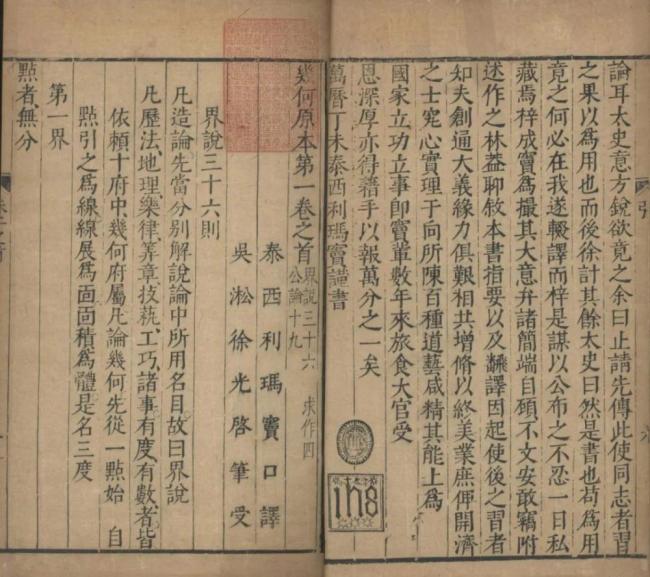 論耳太史意方銳欲竟之余曰止請先傳此使同志者習
之果以為用也而後徐計其餘太史曰然是書也苟為用
竟之何必在我遂輟譯而梓是謀以公布之不忍一日私
藏焉梓成竇為撮其大意弁諸簡端自顧不文安敢竊附
述作之林葢聊敘本書指要以及飜譯因起使後之習者
知夫創通大義緣力俱艱相共增脩以終美業庶俾開濟
之士究心實理于向所陳百種道藝咸精其能上為
國家立功立事即竇輩數年來旅食大官受
恩深厚亦得藉手以報萬分之一矣
萬曆丁未泰西利瑪竇謹書
ihs
幾何原本第一卷之首 界說三十六 公論十九 求作四
泰西利瑪竇口譯
吳淞徐光啓筆受
界說三十六則
凡造論先當分別解說論中所用名目故曰界說
凡歷法地理樂律筭章技蓺工巧諸事有度有數者皆
依賴十府中幾何府屬凡論幾何先從一點始自
點引之為線線展為面面積為體是名三度
第一界
點者無分